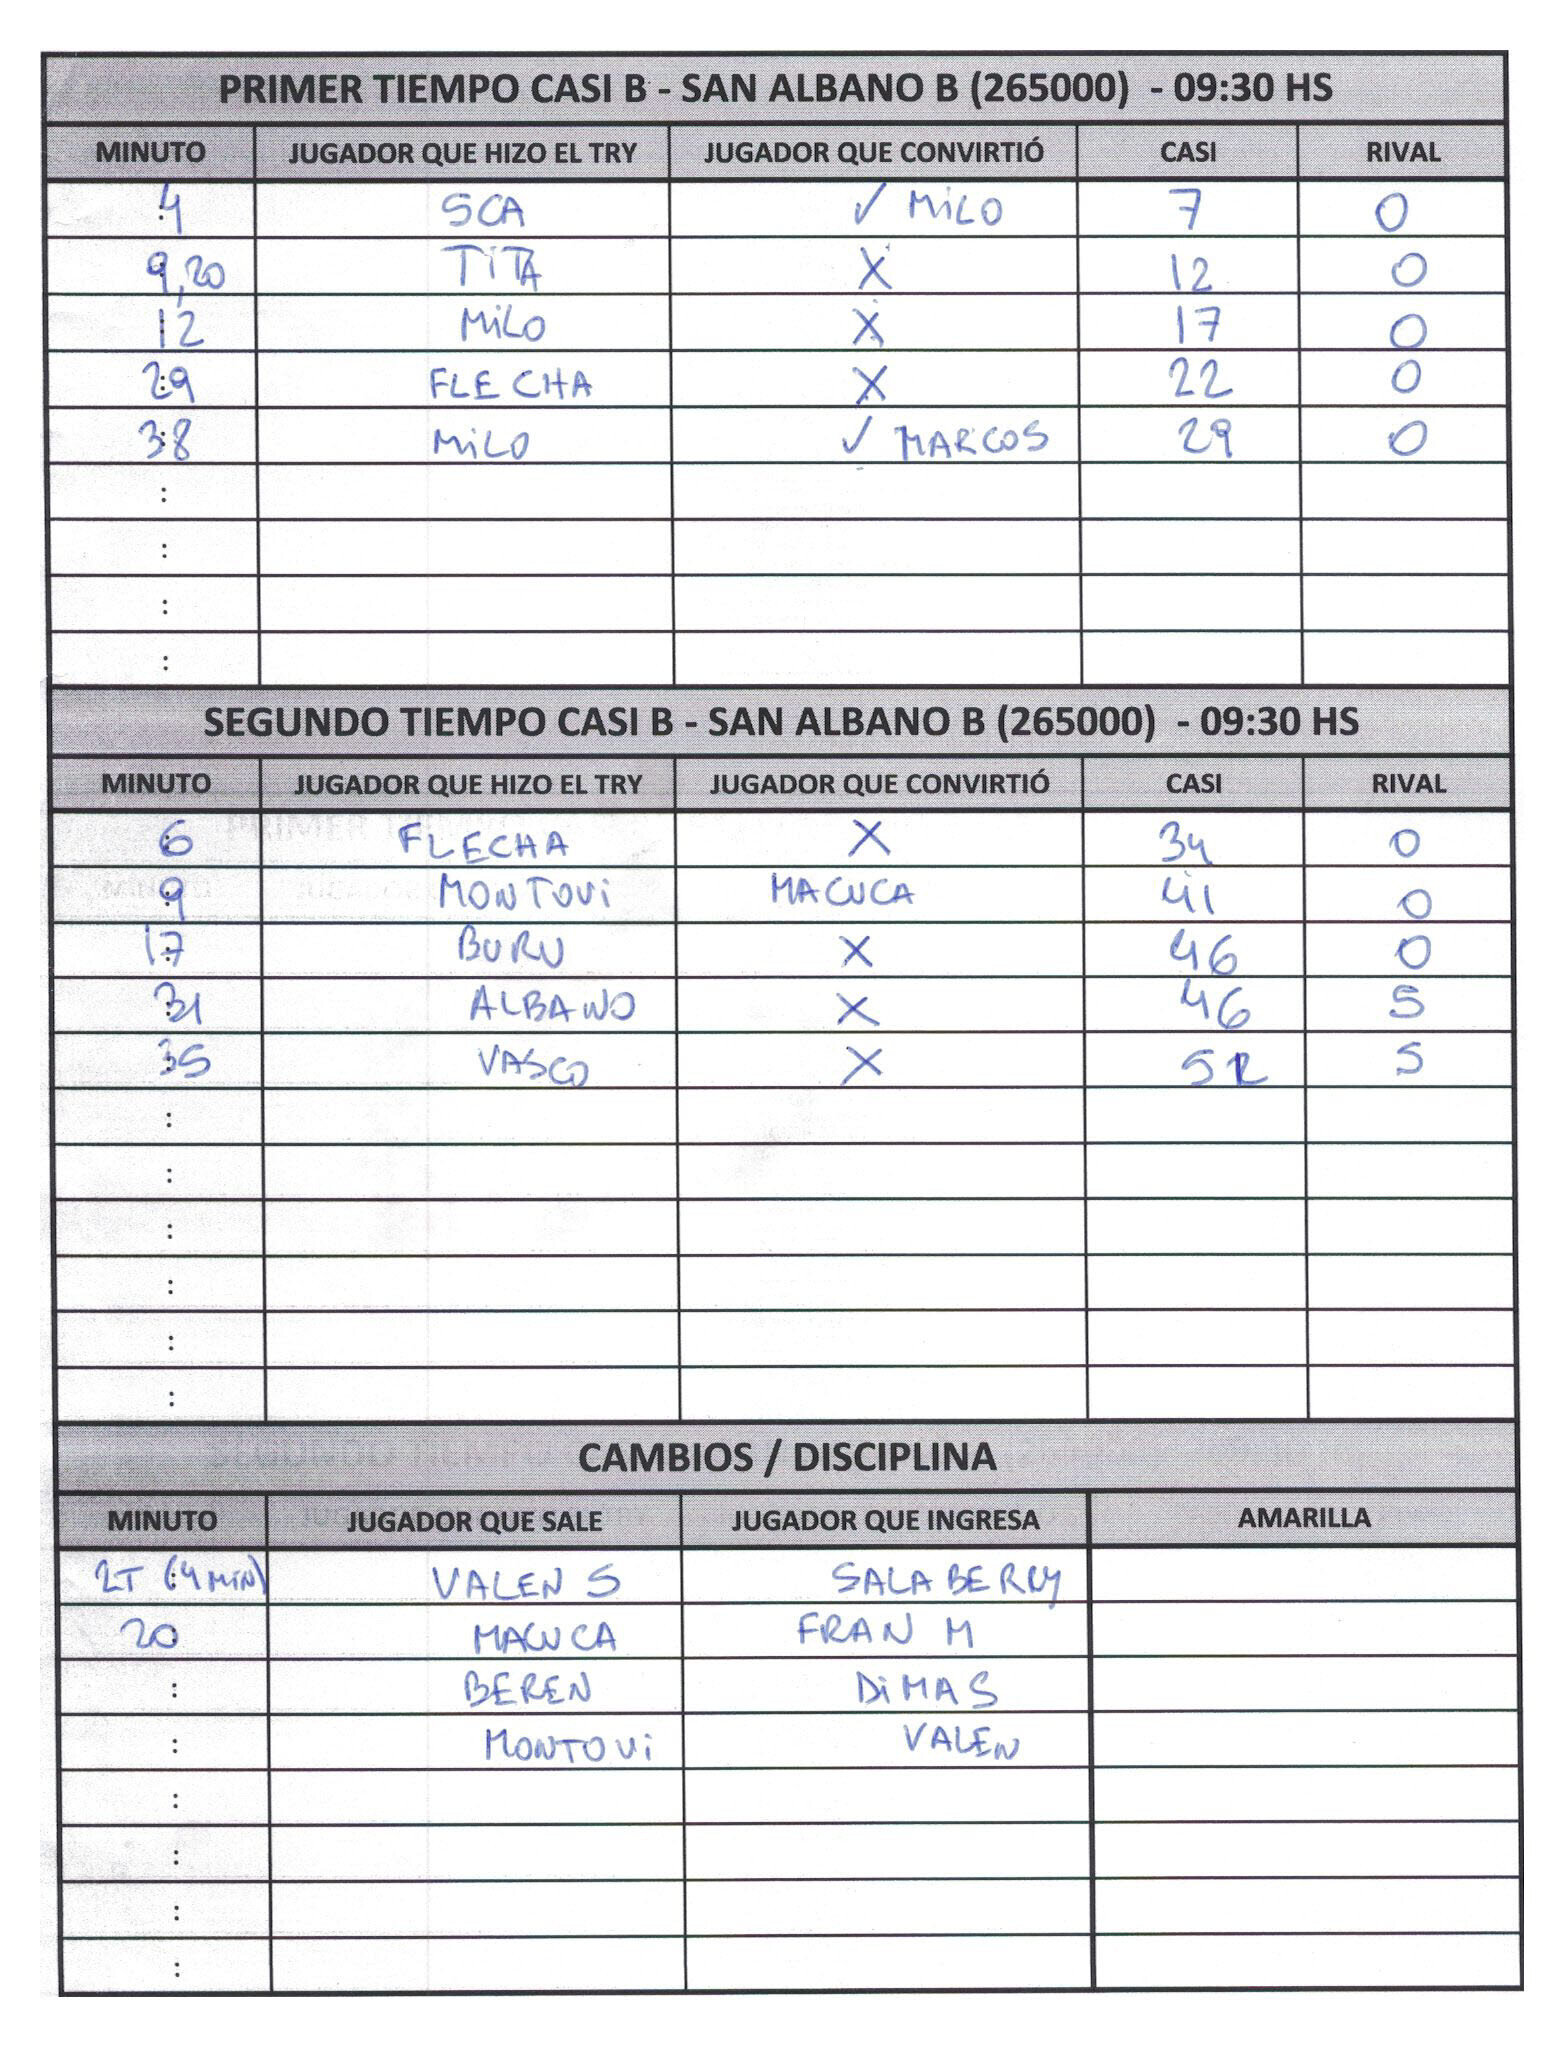 PRIMER TIEMPO CASI B - SAN ALBANO B (265000) - 09:30 HS
MINUTO JUGADOR QUE HIZO EL TRY JUGADOR QUE CONVIRTIÓ CASI RIVAL
4 SCA ✓ MiLO 7 0
9,20 TiTA X 12 0
12 MiLO X 17 0
29 FLECHA X 22 0
38 MiLO ✓ MARCOS 29 0
:
:
:
:
SEGUNDO TIEMPO CASI B - SAN ALBANO B (265000) - 09:30 HS
MINUTO JUGADOR QUE HIZO EL TRY JUGADOR QUE CONVIRTIÓ CASI RIVAL
6 FLECHA X 34 0
9 MONTOVi MACUCA 41 0
17 BURU X 46 0
31 ALBANO X 46 5
35 VASCO X 5
:
:
:
:
:
:
CAMBIOS / DISCIPLINA
MINUTO JUGADOR QUE SALE JUGADOR QUE INGRESA AMARILLA
2T (4 MiN) VALEN S SALABERRY
20 MACUCA FRAN M
: BEREN DiMAS
: MONTOVi VALEN
:
:
:
: